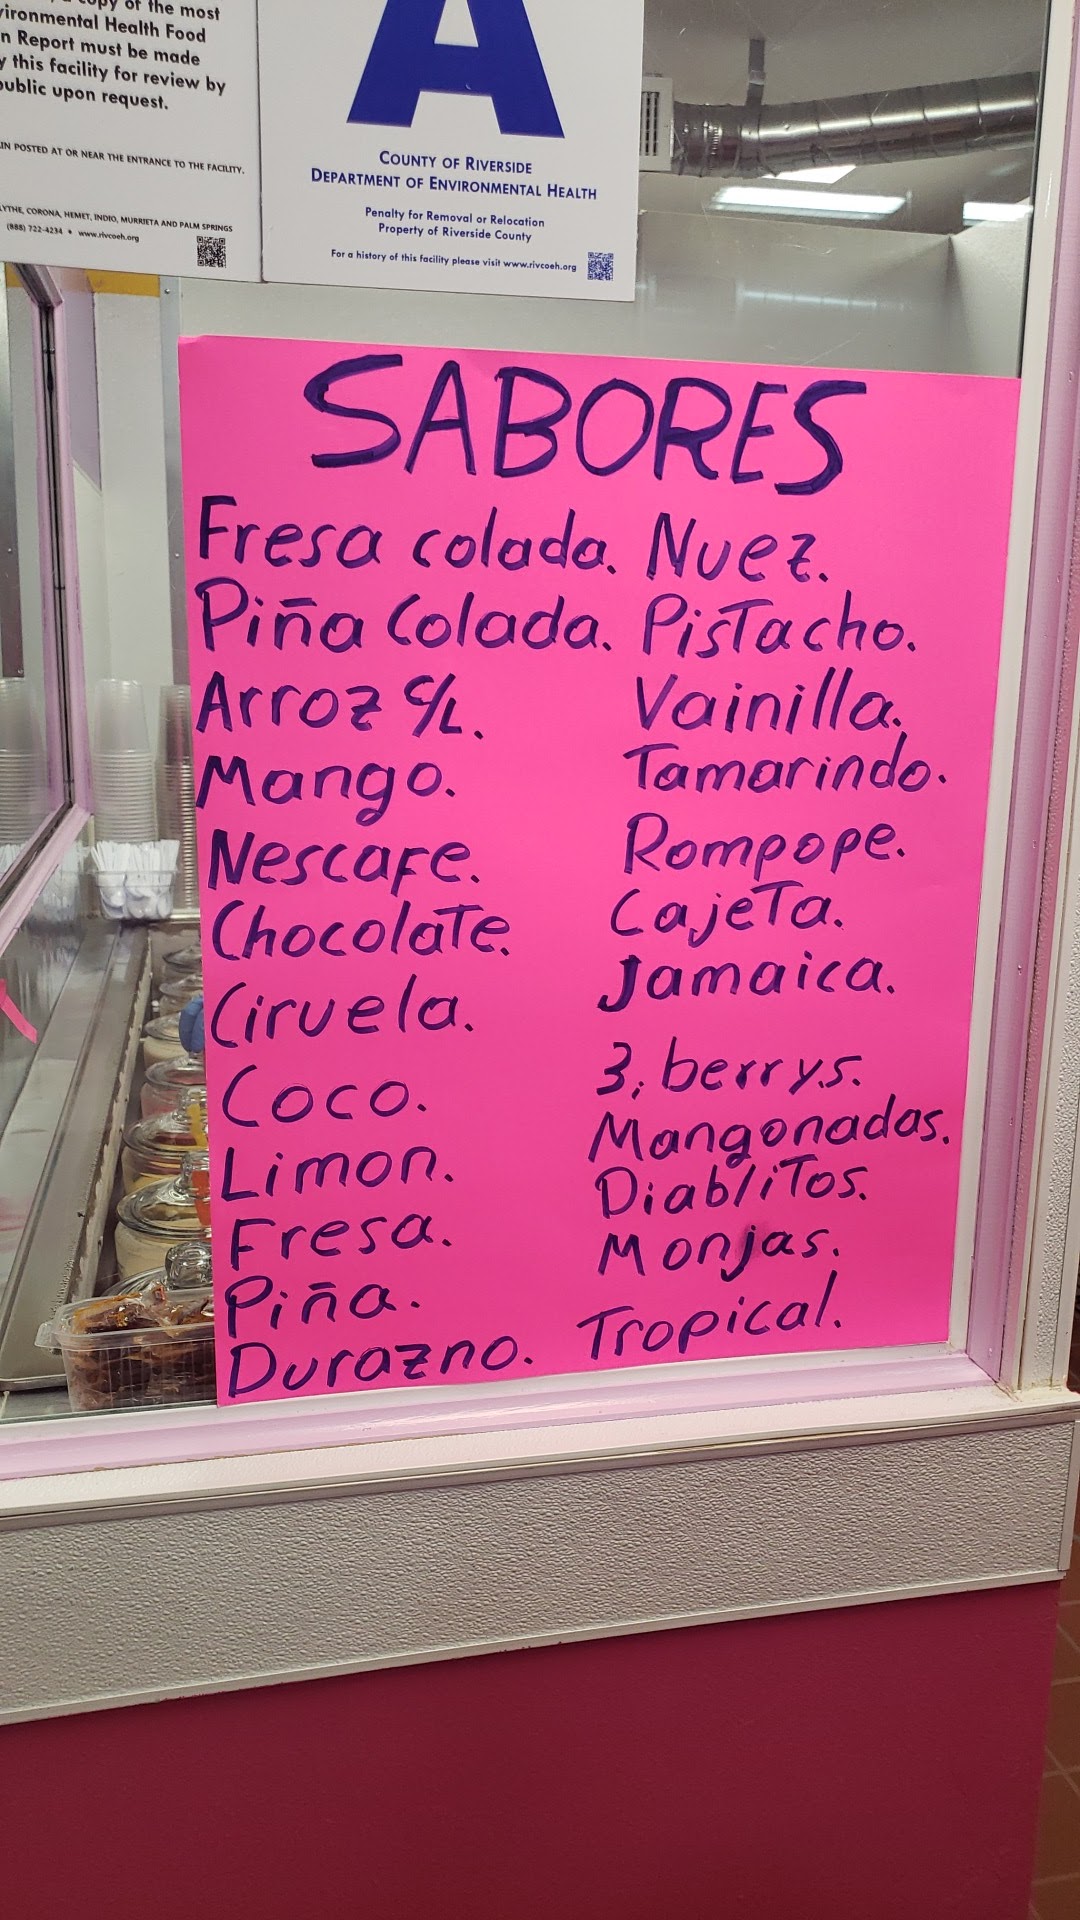 copy of the most
vironmental Health Food
n Report must be made
y this facility for review by
public upon request.
IN POSTED AT OR NEAR THE ENTRANCE TO THE FACILITY.
LYTHE, CORONA, HEMET, INDIO, MURRIETA AND PALM SPRINGS
(888) 722-4234 • www.rivcoeh.org
A
COUNTY OF RIVERSIDE
DEPARTMENT OF ENVIRONMENTAL HEALTH
Penalty for Removal or Relocation
Property of Riverside County
For a history of this facility please visit www.rivcoeh.org
SABORES
Fresa colada.
Piña Colada.
Arroz c/L.
Mango.
Nescafe.
Chocolate.
Ciruela.
Coco.
Limon.
Fresa.
Piña.
Durazno.
Nuez.
Pistacho.
Vainilla.
Tamarindo.
Rompope.
Cajeta.
Jamaica.
3, berrys.
Mangonadas.
Diablitos.
Monjas.
Tropical.